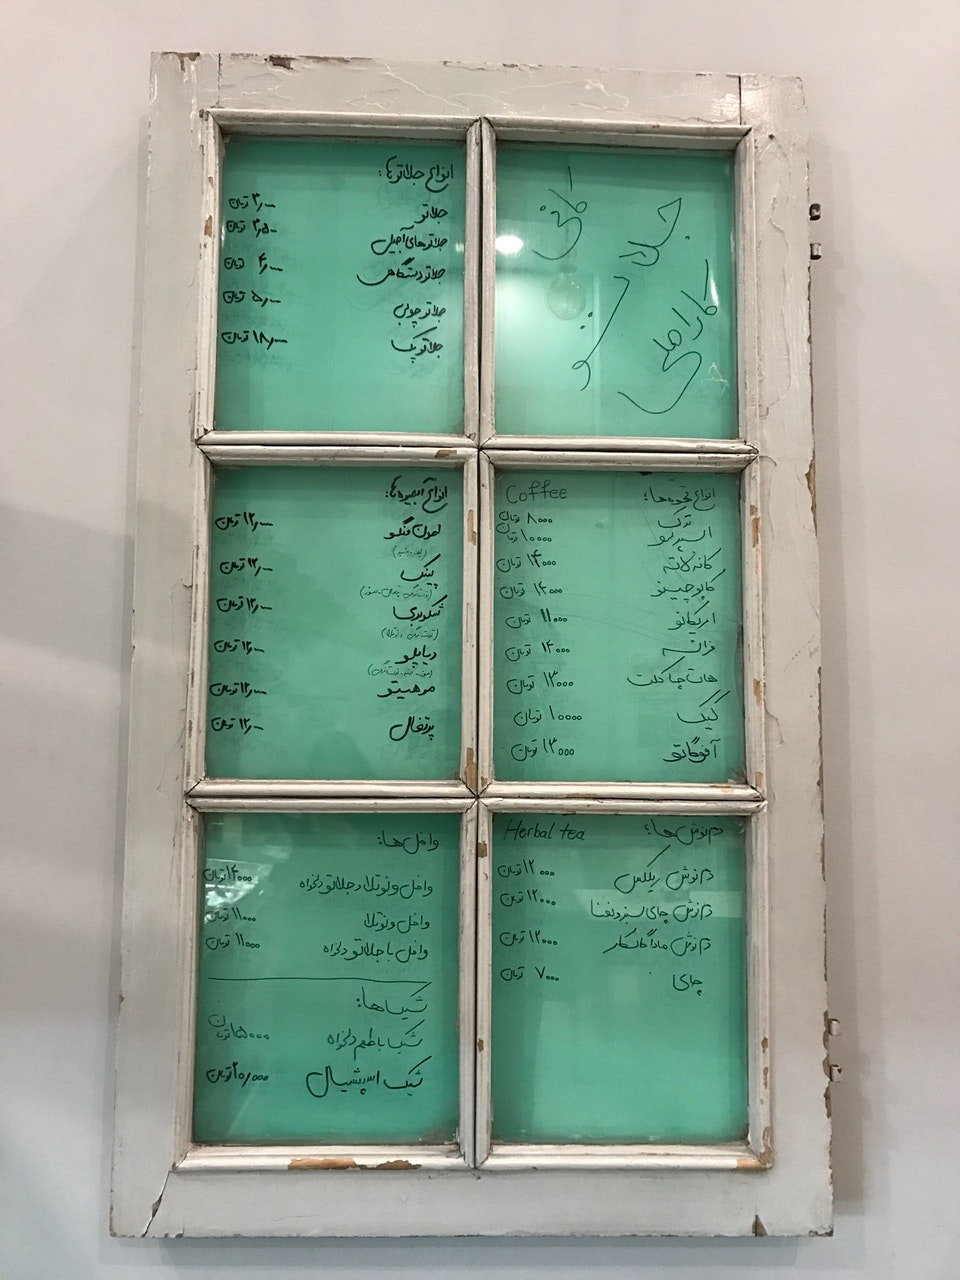 کافی
جلاتو
کاراملی
انواع جلاتوها:
جلاتو ۳٫۰۰۰ تومان
جلاتوهای آجیلی ۳٫۵۰۰ تومان
جلاتو دستگاهی ۴٫۰۰۰ تومان
جلاتو چوبی ۵٫۰۰۰ تومان
جلاتو پک ۱۸٫۰۰۰ تومان
انواع قهوه‌ها: Coffee
ترک ۸۰۰۰ تومان
اسپرسو ۱۰۰۰۰ تومان
کافه لاته ۱۴۰۰۰ تومان
کاپوچینو ۱۴۰۰۰ تومان
امریکانو ۱۱۰۰۰ تومان
فرانسه ۱۴۰۰۰ تومان
هات چاکلت ۱۳۰۰۰ تومان
کیک ۱۰۰۰۰ تومان
آفوگاتو ۱۳۰۰۰ تومان
انواع آبمیوه‌ها:
لمون منگو ۱۲٫۰۰۰ تومان
پینک ۱۲٫۰۰۰ تومان
شکوبری ۱۲٫۰۰۰ تومان
(توت فرنگی و نوتلا)
دیاپلو ۱۲٫۰۰۰ تومان
موهیتو ۱۲٫۰۰۰ تومان
پرتقال ۱۲٫۰۰۰ تومان
دم نوش ها: Herbal tea
دم نوش ریلکس ۱۲۰۰۰ تومان
دم نوش چای سبز و نعنا ۱۲۰۰۰ تومان
دم نوش ماداگاسکار ۱۲۰۰۰ تومان
چای ۷۰۰۰ تومان
وافل ها:
وافل و نوتلا و جلاتو دلخواه ۱۴۰۰۰ تومان
وافل و نوتلا ۱۱۰۰۰ تومان
وافل با جلاتو دلخواه ۱۱۰۰۰ تومان
شیک ها:
شیک با طعم دلخواه ۱۵۰۰۰ تومان
شیک اسپشیال ۲۰٫۰۰۰ تومان